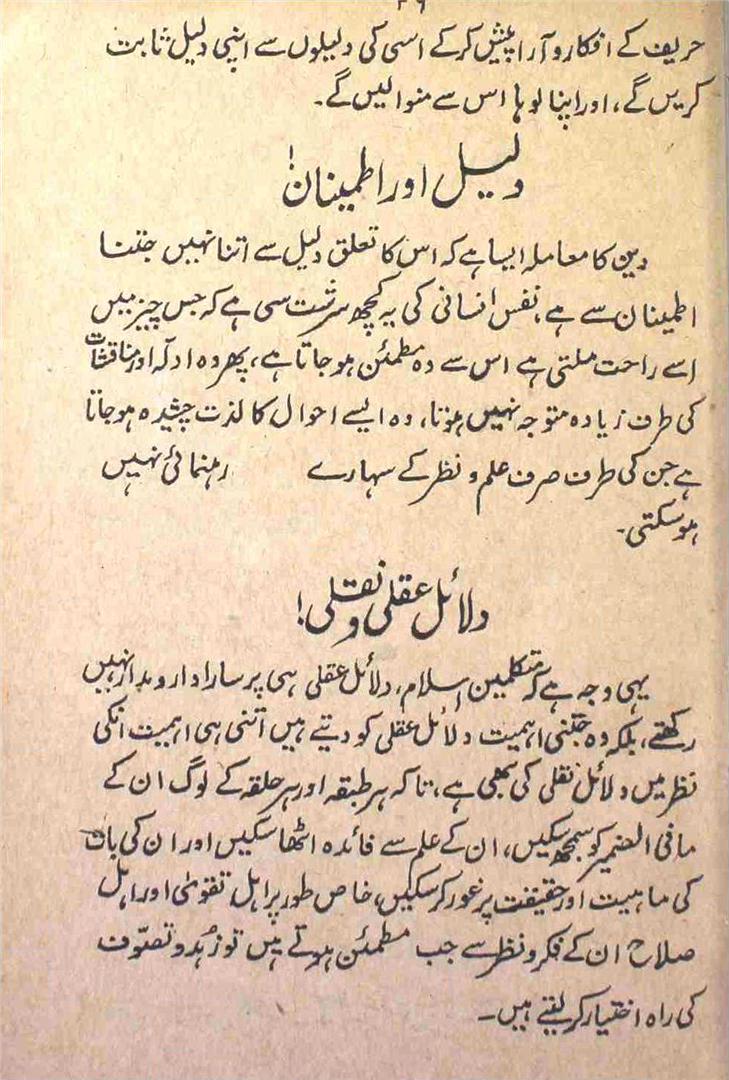 حریف کے افکار و آرا پیش کرکے اسی کی دلیلوں سے اپنی دلیل ثابت
کریں گے، اور اپنا لوہا اس سے منوالیں گے۔
دلیل اور اطمینان!
دین کا معاملہ ایسا ہے کہ اس کا تعلق دلیل سے اتنا نہیں جتنا
اطمینان سے ہے، نفس انسانی کی یہ کچھ سرشت سی ہے کہ جس چیز میں
اسے راحت ملتی ہے اس سے وہ مطمئن ہو جاتا ہے، پھر وہ ادلّہ اور مناقشات
کی طرف زیادہ متوجہ نہیں ہوتا، وہ ایسے احوال کا لذت چشیدہ ہو جاتا
ہے جن کی طرف صرف علم و نظر کے سہارے رہنمائی نہیں
ہو سکتی۔
دلائل عقلی و نقلی!
یہی وجہ ہے کہ متکلمین اسلام، دلائل عقلی ہی پر سارا دارومدار نہیں
رکھتے، بلکہ وہ جتنی اہمیت دلائل عقلی کو دیتے ہیں اتنی ہی اہمیت انکی
نظر میں دلائل نقلی کی بھی ہے، تاکہ ہر طبقہ اور ہر حلقہ کے لوگ ان کے
مافی الضمیر کو سمجھ سکیں، ان کے علم سے فائدہ اٹھا سکیں اور ان کی بات
کی ماہیت اور حقیقت پر غور کر سکیں، خاص طور پر اہل تقویٰ اور اہل
صلاح ان کے فکر و نظر سے جب مطمئن ہوتے ہیں تو زُہد و تصوّف
کی راہ اختیار کر لیتے ہیں۔